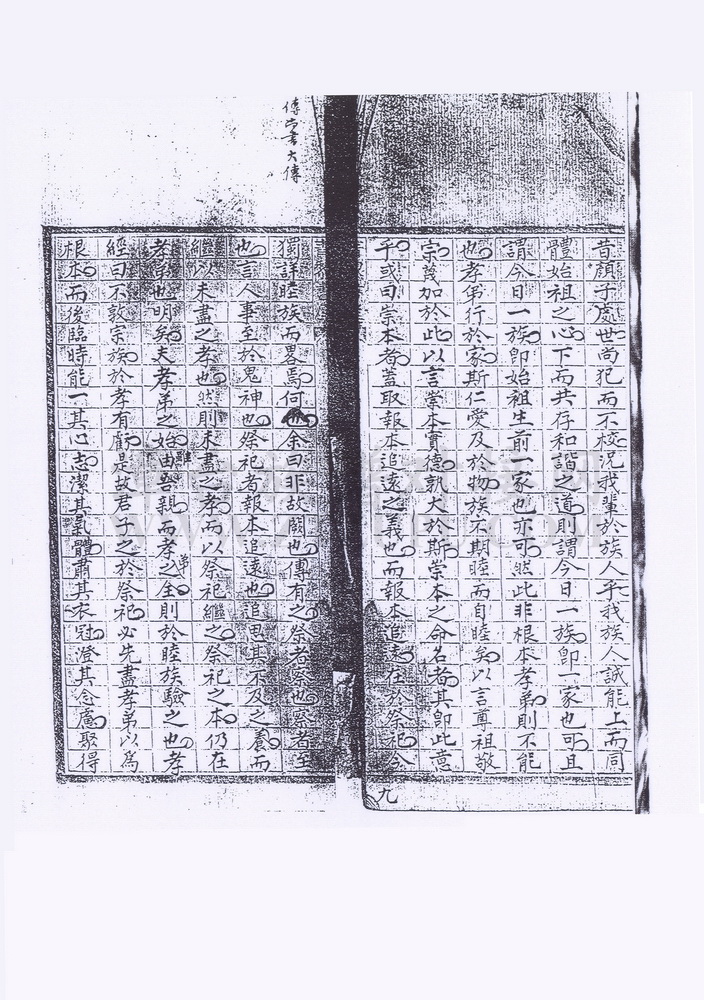 昔顏子處世尚犯而不校況我輩於族人乎我族人誠能上而同
體始祖之心下而共存和諧之道則謂今日一族即一家也可且
謂今日一族即始祖生前一家也亦可然此非根本孝弟則不能
也孝弟行於家斯仁愛及於物族不期睦而自睦矣以言尊祖敬
宗蔑加於此以言崇本實德孰大於斯崇本之命名者其即此意
乎或曰崇本者蓋取報本追遠之義也而報本追遠在於祭祀今
九
傳尚書大傳
獨詳睦族而畧焉何也余曰非故闕也傳有之祭者祭也祭者至
也言人事至於鬼神也祭祀者報本追遠也追思其不及之養而
繼以未盡之孝也然則未盡之孝而以祭祀繼之祭祀之本仍在
孝弟也明矣夫孝弟之始雖由吾親而孝弟之全則於睦族驗之也孝
經曰不敦宗族於孝有虧是故君子之於祭祀必先盡孝弟以為
根本而後臨時能一其心志潔其氣體肅其衣冠澄其念慮聚得